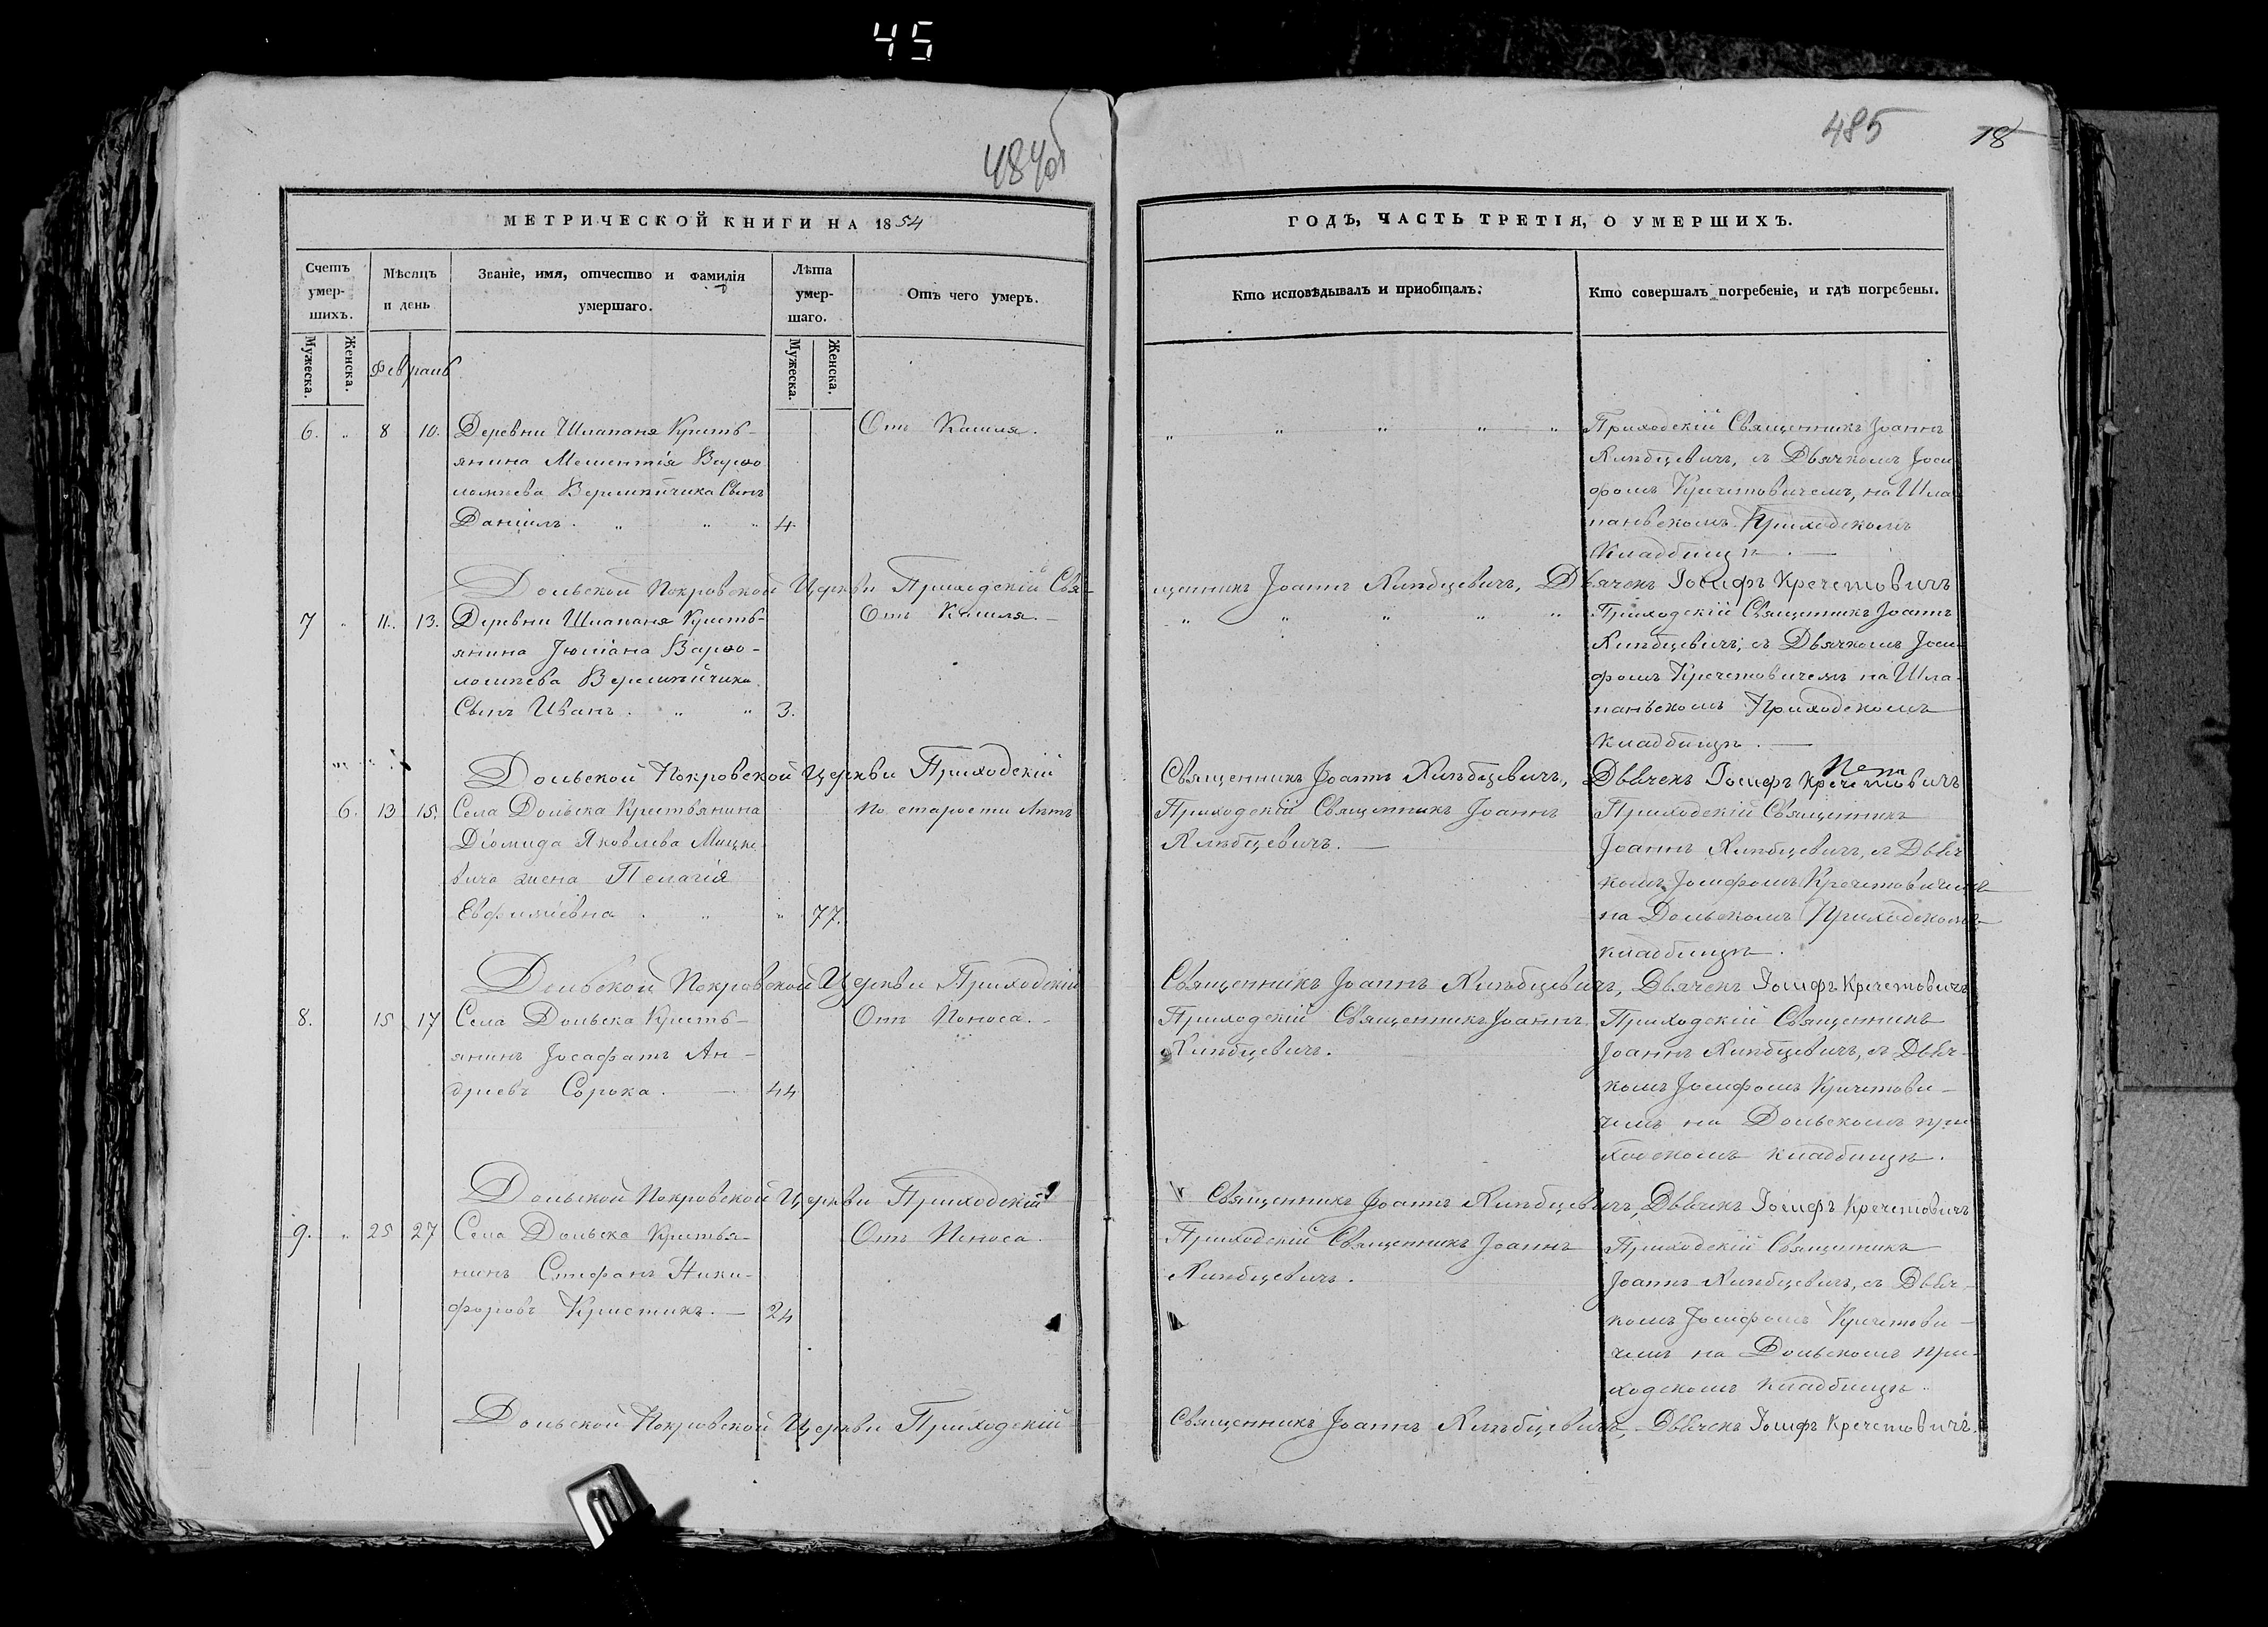 45
484об
485
18
МЕТРИЧЕСКОЙ КНИГИ НА 1854
ГОДЪ, ЧАСТЬ ТРЕТІЯ, О УМЕРШИХЪ.
Счетъ умер-шихъ.
Мужеска.
Женска.
Мѣсяцъ и день
Званіе, имя, отчество и фамилія умершаго.
Лѣта умер-шаго.
Мужеска.
Женска.
Отъ чего умеръ.
Кто исповѣдывалъ и приобщалъ.
Кто совершалъ погребеніе, и гдѣ погребены.
Февраль
6. „ 8 10. Деревни Шлапаня Кресть-
янина Мелентія Варѳо
ломѣева Веремѣйчика Сынъ
Даніилъ . „ „ „ 4.
Отъ Кашля.
„ „ „ „ „
Приходскій Священникъ Іоаннъ
Хлѣбцевичъ, съ Дьячкомъ Іоси
фомъ Кречетовичемъ, на Шла
паньскомъ Приходскомъ
Кладбищѣ.
Дольской Покровской Церкви Приходскій Свя-
щенникъ Іоаннъ Хлѣбцевичъ, Дьячекъ Іосифъ Кречетовичъ
7 „ 11. 13. Деревни Шлапаня Кресть-
янина Іюліана Варѳо-
ломѣева Веремѣйчика
Сынъ Иванъ . „ „ 3.
Отъ Кашля.
„ „ „ „ „
Приходскій Священникъ Іоаннъ
Хлѣбцевичъ, съ Дьячкомъ Іоси
фомъ Кречетовичемъ на Шла-
паньскомъ Приходскомъ
Кладбищѣ.
Дольской Покровской Церкви Приходскій
Священникъ Іоаннъ Хлѣбцевичъ, Дьячекъ Іосифъ Кречетовичъ
6. 13 15. Села Дольска Крестьянина
Діомида Яковлева Мицке
вича жена Пелагія
Евфиміевна . „ „ 77.
По старости лѣтъ
Приходскій Священникъ Іоаннъ
Хлѣбцевичъ.
Приходскій Священникъ
Іоаннъ Хлѣбцевичъ, съ Дьяч
комъ Іосифомъ Кречетовичемъ
на Дольскомъ Приходскомъ
кладбищѣ.
Дольской Покровской Церкви Приходскій
Священникъ Іоаннъ Хлѣбцевичъ, Дьячекъ Іосифъ Кречетовичъ
8. 15 17 Села Дольска Кресть-
янинъ Іосафатъ Ан-
дреевъ Сорока. 44
Отъ Поноса.
Приходскій Священникъ Іоаннъ
Хлѣбцевичъ.
Приходскій Священникъ
Іоаннъ Хлѣбцевичъ, съ Дьяч-
комъ Іосифомъ Кречетови-
чемъ на Дольскомъ при
ходскомъ кладбищѣ.
Дольской Покровской Церкви Приходскій
Священникъ Іоаннъ Хлѣбцевичъ, Дьячекъ Іосифъ Кречетовичъ
9. „ 25 27 Села Дольска Крестья-
нинъ Стефанъ Ники-
форовъ Кристикъ. 24
Отъ Поноса.
Приходскій Священникъ Іоаннъ
Хлѣбцевичъ.
Приходскій Священникъ
Іоаннъ Хлѣбцевичъ, съ Дьяч-
комъ Іосифомъ Кречетови-
чемъ на Дольскомъ при-
ходскомъ кладбищѣ.
Дольской Покровской Церкви Приходскій
Священникъ Іоаннъ Хлѣбцевичъ, Дьячекъ Іосифъ Кречетовичъ.